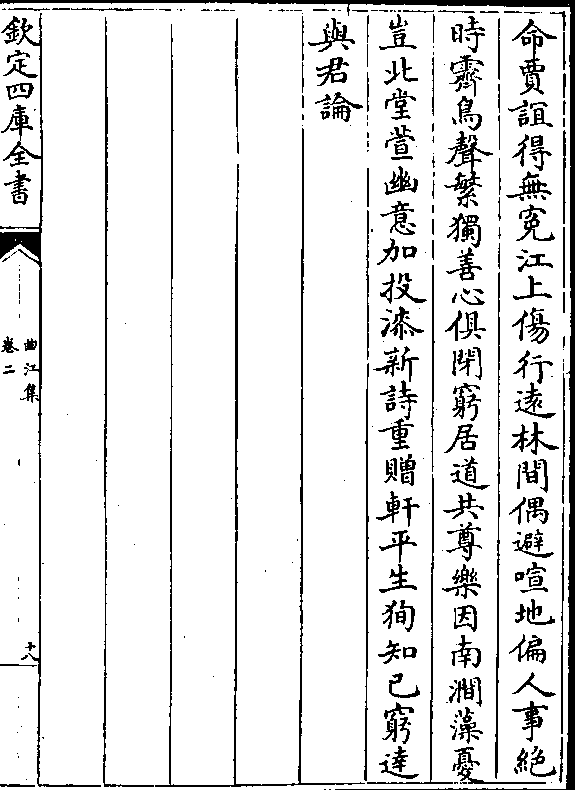 命賈誼得無寃江上傷行逺林間偶避喧地偏人事絶
時霽鳥聲繁獨善心俱閉窮居道共尊樂因南澗藻憂
豈北堂萱幽意加投漆新詩重贈軒平生狥知己窮逹
與君論
欽定四庫全書
曲江集
卷二
十八